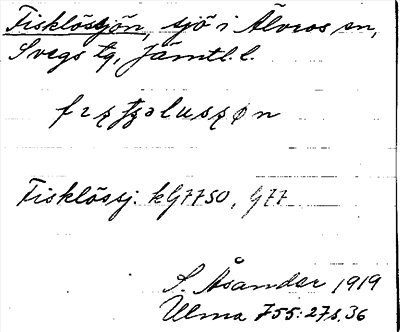 Fisklössjön, sjö i Älvros sn,
Svegs tg, Jämtl. l.
Fisklössj. kG7750, G77
S. Åsander 1919
Ulma 755:27 s. 36